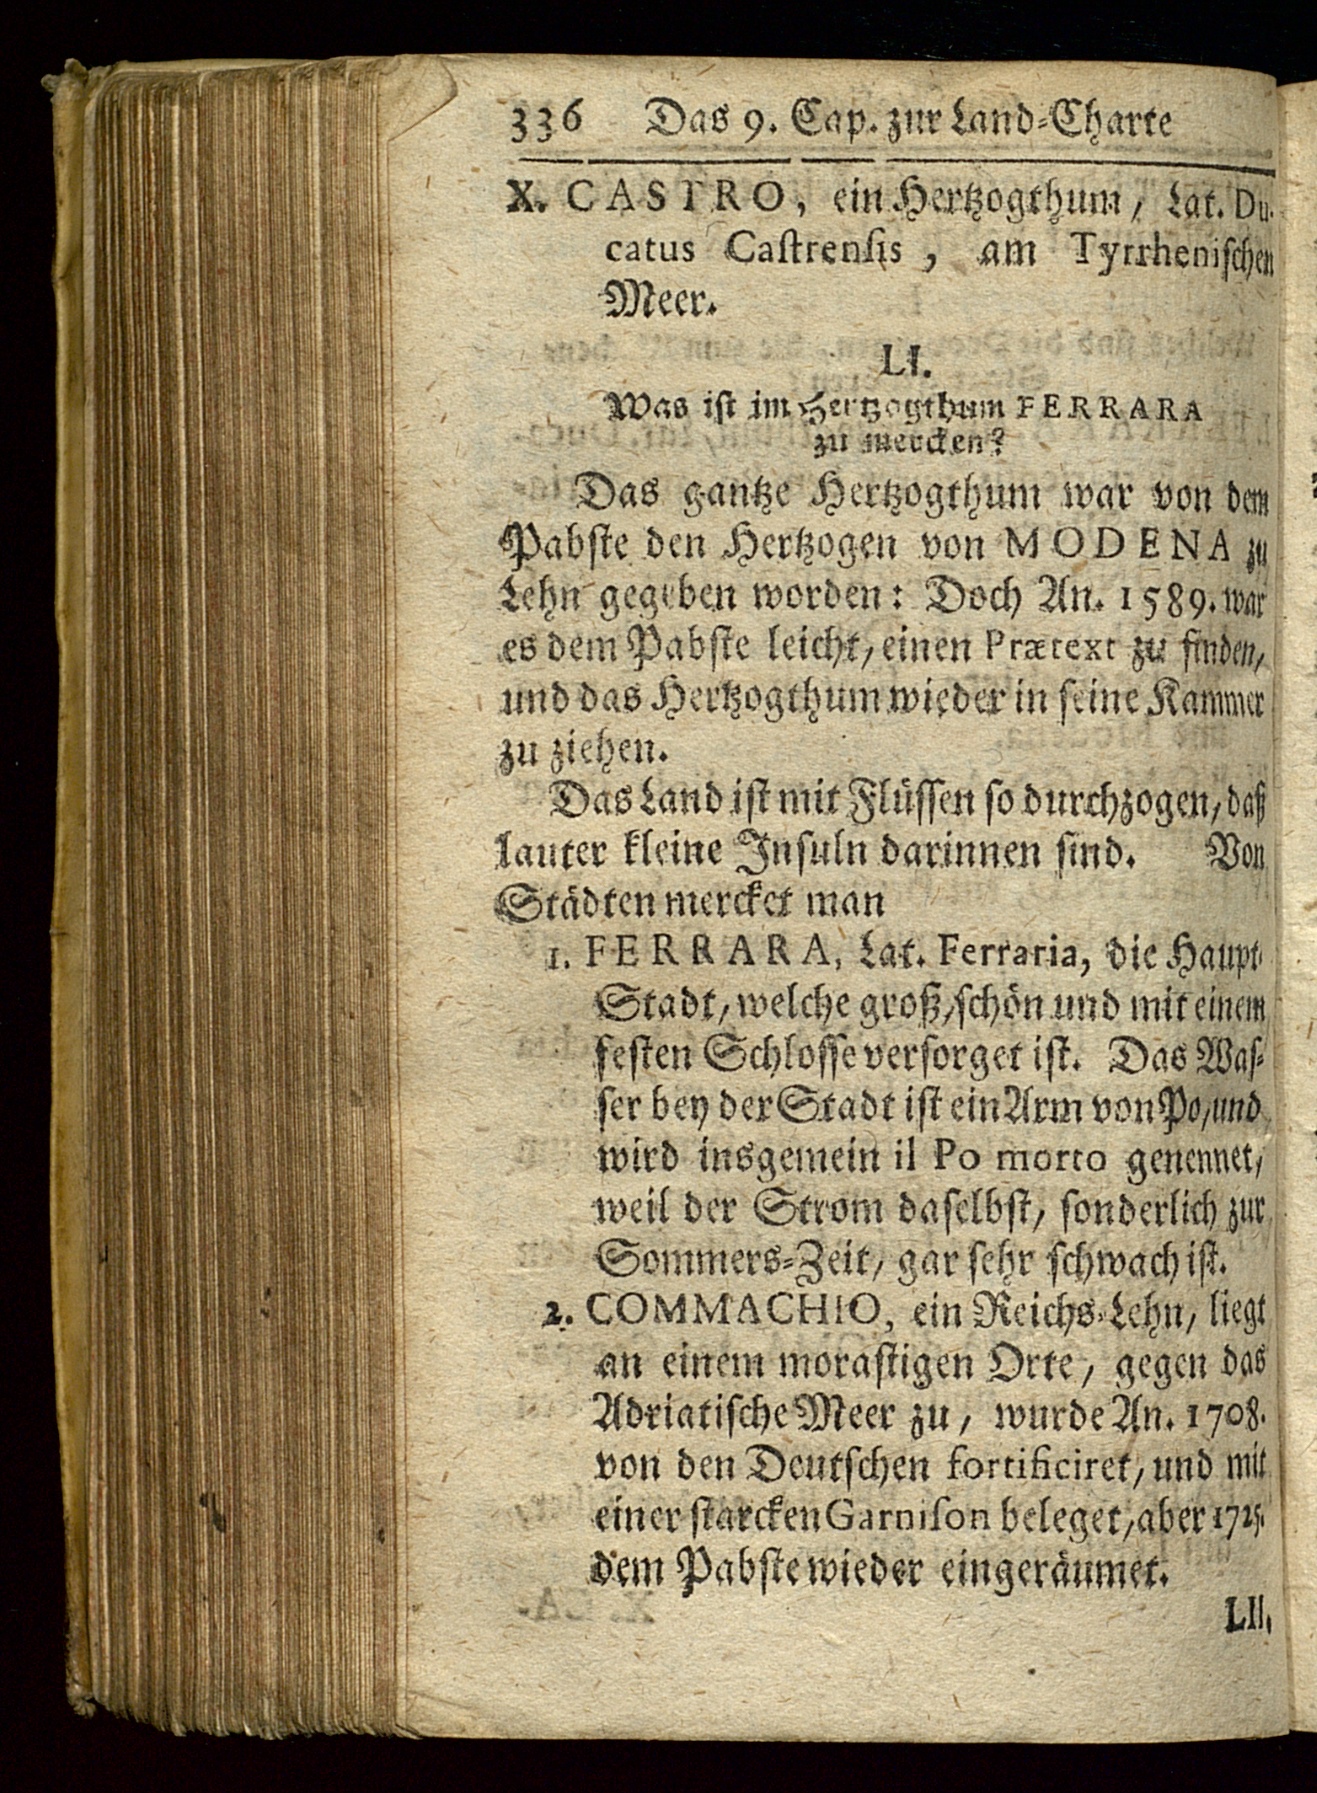 336 Das 9. Cap. zur Land-Charte
X. CASTRO, ein Hertzogthum, Lat. Du-
catus Castrensis, am Tyrrhenischen
Meer.
LI.
Was ist im Hertzogthum FERRARA
zu mercken?
Das gantze Hertzogthum war von dem
Pabste den Hertzogen von MODENA zu
Lehn gegeben worden: Doch An. 1589. war
es dem Pabste leicht, einen Prætext zu finden,
und das Hertzogthum wieder in seine Kammer
zu ziehen.
Das Land ist mit Flüssen so durchzogen, daß
lauter kleine Insuln darinnen sind. Von
Städten mercket man
1. FERRARA, Lat. Ferraria, die Haupt-
Stadt, welche groß, schön und mit einem
festen Schlosse versorget ist. Das Was-
ser bey der Stadt ist ein Arm von Po, und
wird insgemein il Po morto genennet,
weil der Strom daselbst, sonderlich zur
Sommers-Zeit, gar sehr schwach ist.
2. COMMACHIO, ein Reichs-Lehn, liegt
an einem morastigen Orte, gegen das
Adriatische Meer zu, wurde An. 1708.
von den Deutschen fortificiret, und mit
einer starcken Garnison beleget, aber 1725.
dem Pabste wieder eingeräumet.
LII.